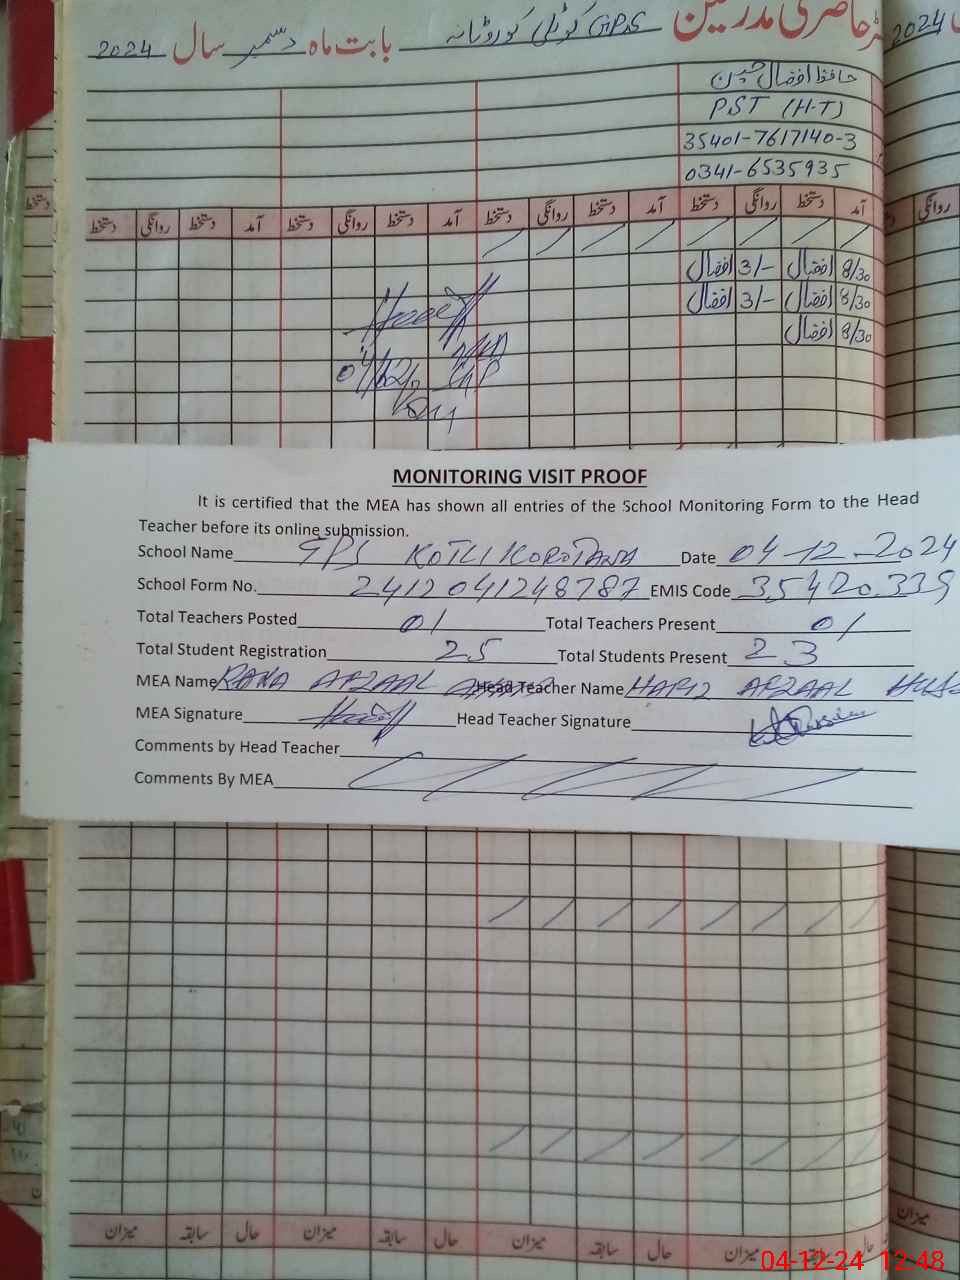 رجسٹر حاضری مدرسین GPS کوٹلی کوروٹانہ بابت ماہ دسمبر سال 2024
2024
حافظ افضال حسین
PST (H-T)
35401-7617140-3
0341-6535935
آمد دستخط روانگی دستخط آمد دستخط روانگی دستخط آمد دستخط روانگی دستخط آمد دستخط روانگی دستخط
روانگی
8/30 افضال 3/- افضال
8/30 افضال 3/- افضال
8/30 افضال
MONITORING VISIT PROOF
It is certified that the MEA has shown all entries of the School Monitoring Form to the Head
Teacher before its online submission.
School Name GPS KOTLI KOROTANA Date 04-12-2024
School Form No. 2412041248787 EMIS Code 35420339
Total Teachers Posted 01 Total Teachers Present 01
Total Student Registration 25 Total Students Present 23
MEA Name RANA AFZAAL Head Teacher Name HAFIZ AFZAAL HUSS
MEA Signature Head Teacher Signature
Comments by Head Teacher
Comments By MEA
حال سابقہ میزان حال سابقہ میزان حال سابقہ میزان حال سابقہ میزان
میزان
04-12-24 12:48